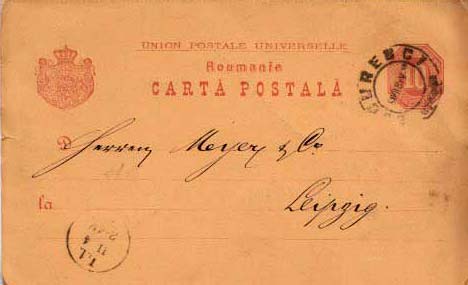 UNION POSTALE UNIVERSELLE
Roumanie
CARTĂ POSTALĂ
BUCURESCI
D
Herren Meyer & Co
la
Leipzig.